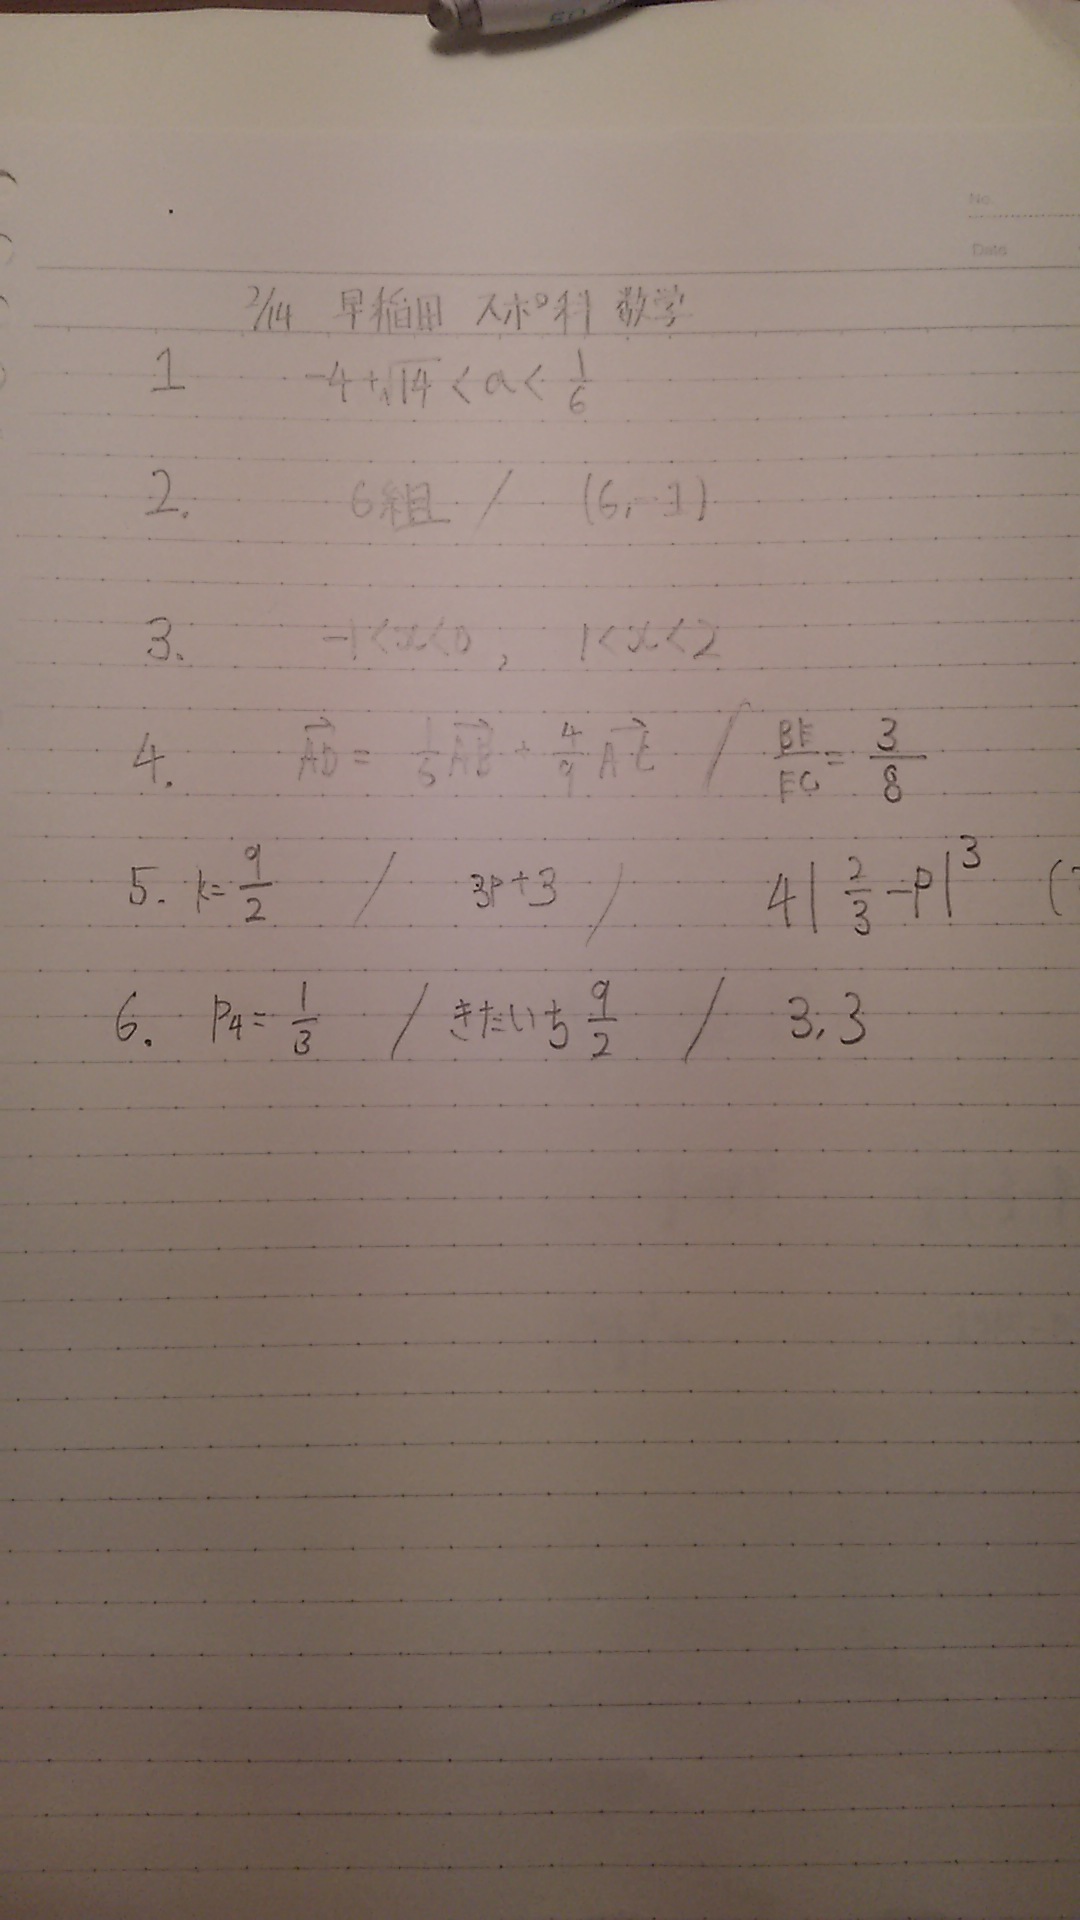 No.
Date
2/14 早稲田 スポ科 数学
1 -4+√14 < a < 1/6
2. 6組 / (6, -1)
3. -1<x<0, 1<x<2
4. AD→ = AB→ + 4/9 AE→ / BE/EC = 3/8
5. k=9/2 / 3p+3 / 4|2/3-p|^3 (
6. P4=1/3 / きたいち 9/2 / 3,3